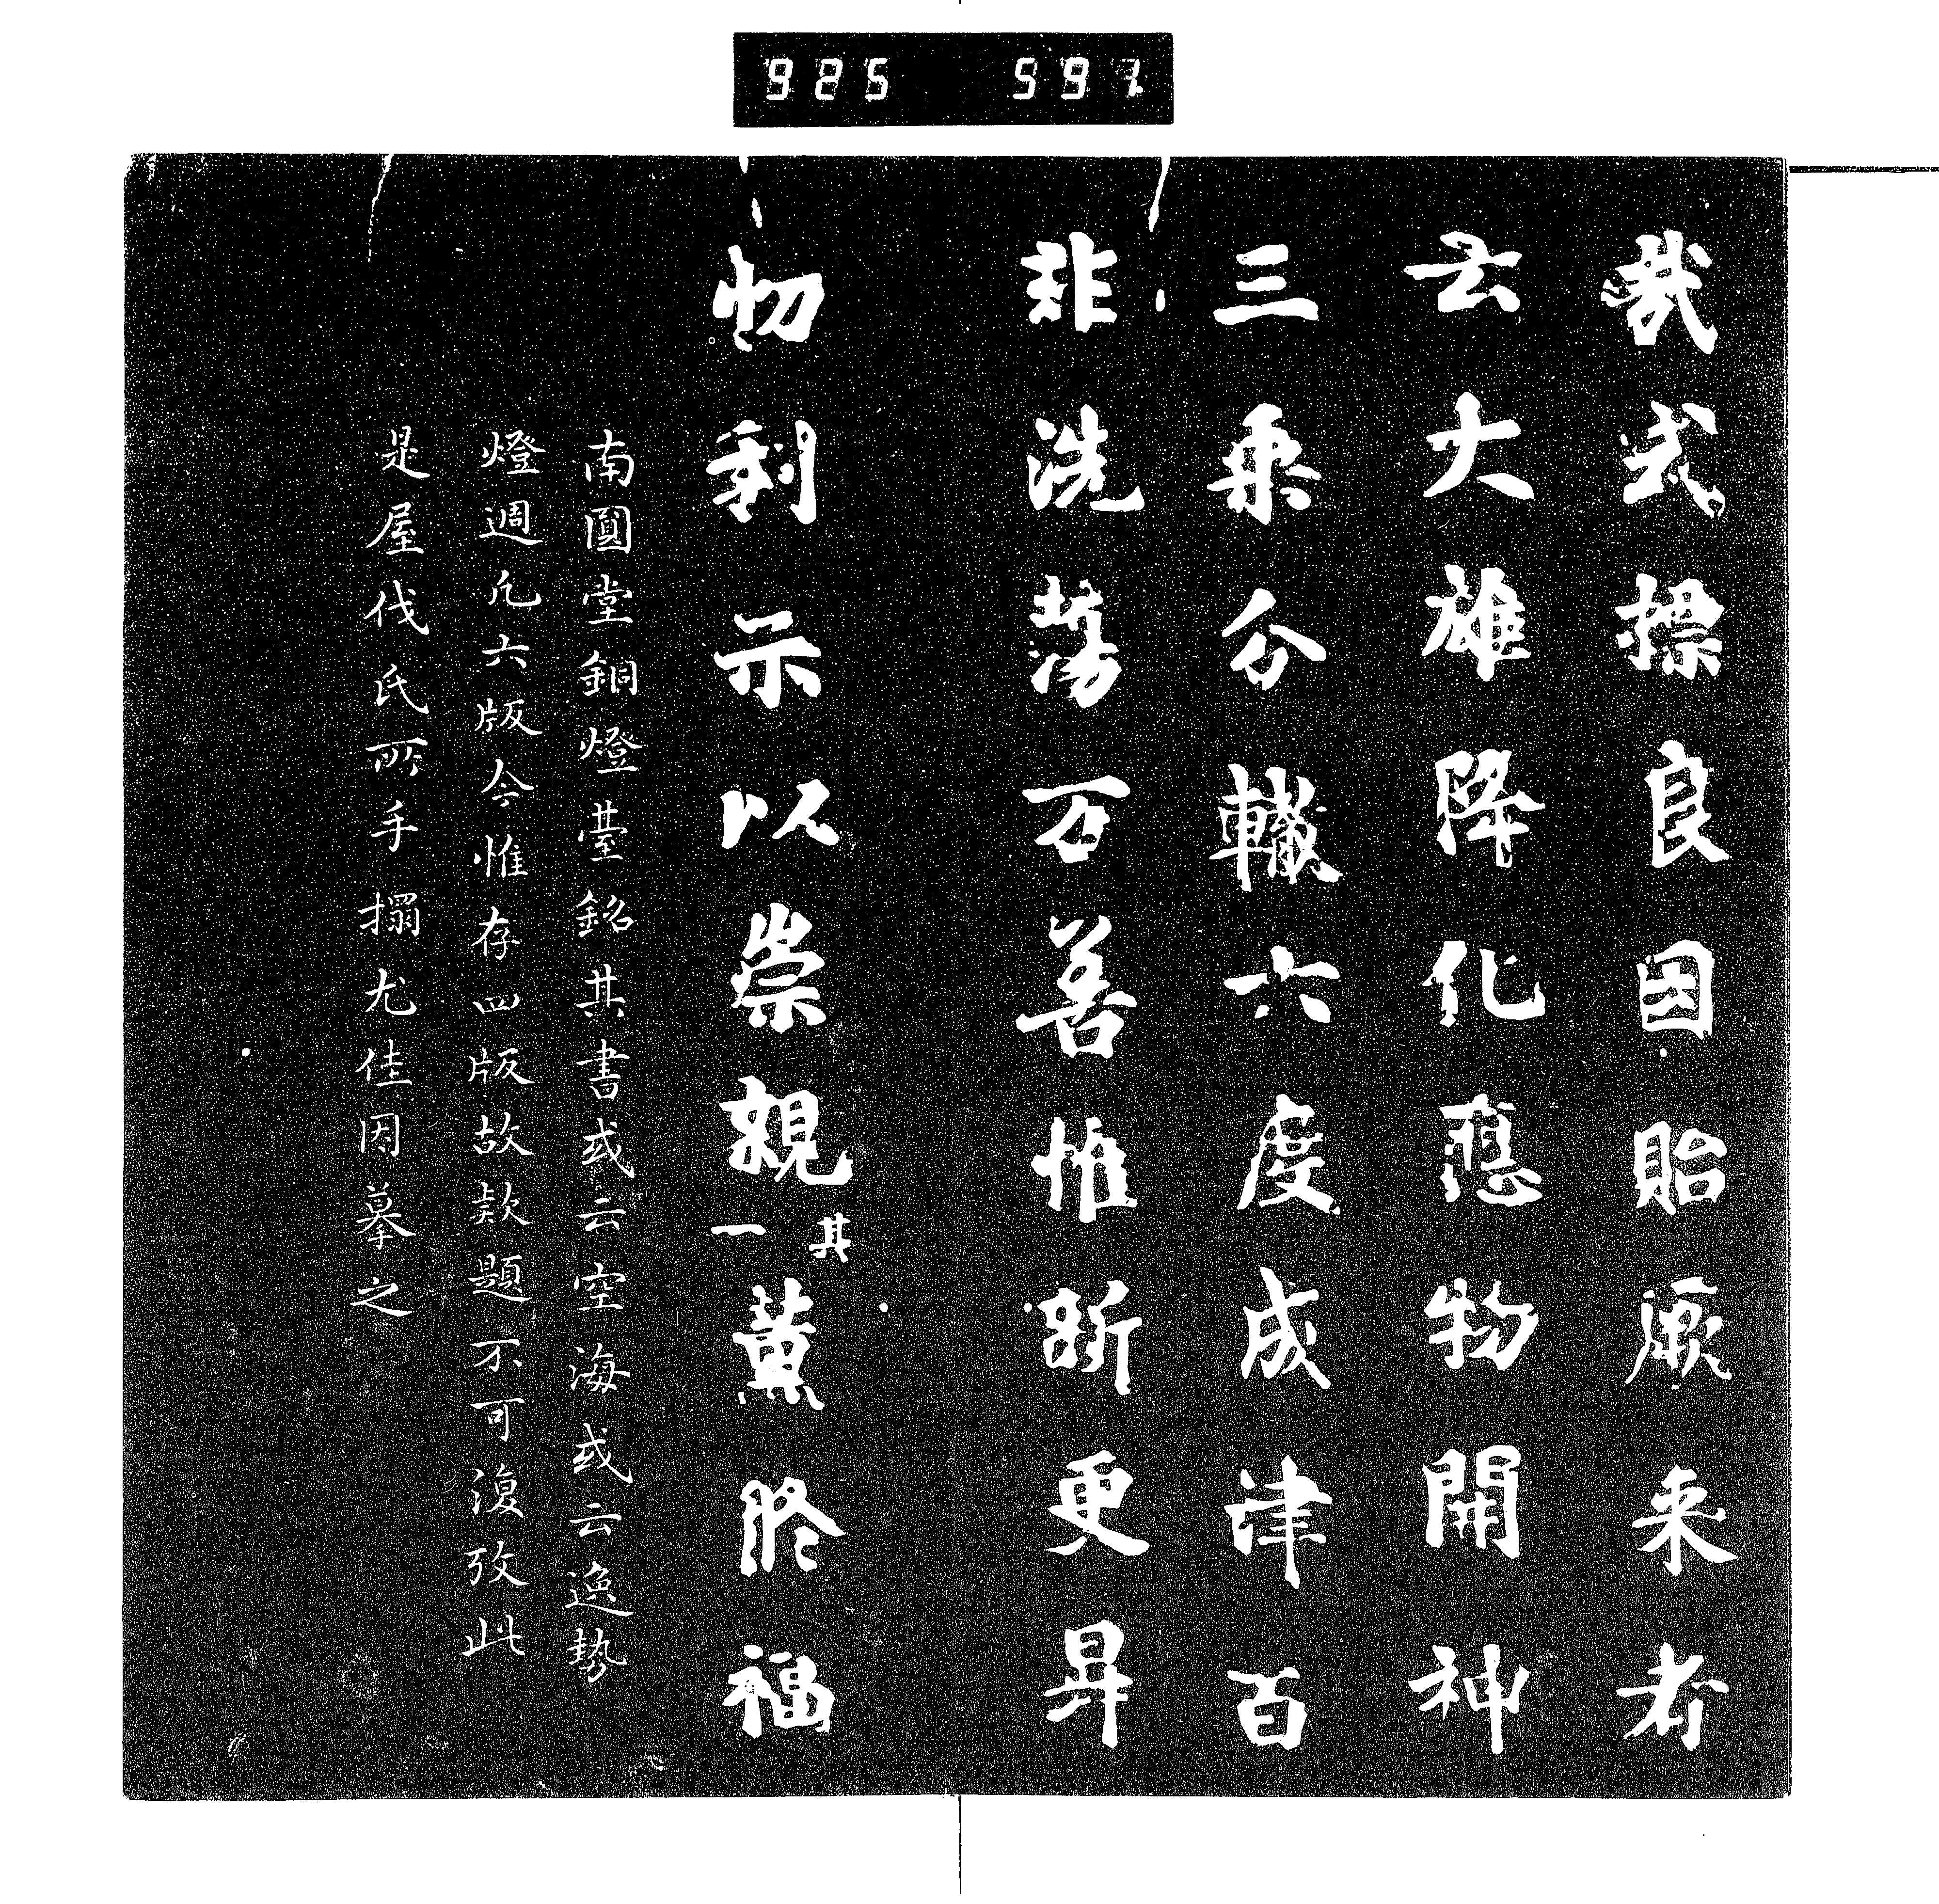 925 597
哉式標良因貽厥来者
云大雄降化應物開神
三乘分轍六度成津百
非洗蕩万善惟新更昇
忉利示以崇親其一薫脩福
南圓堂銅燈臺銘其書或云空海或云逸勢
燈週凡六版今惟存四版故款題不可復攷此
是屋代氏所手搨尤佳因摹之